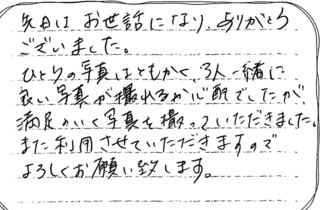 先日は お世話になり、ありがとう
ございました。
ひとりの写真はともかく、3人一緒に
良い写真が撮れるか心配でしたが、
満足のいく写真を撮っていただきました。
また利用させていただきますので
よろしくお願い致します。